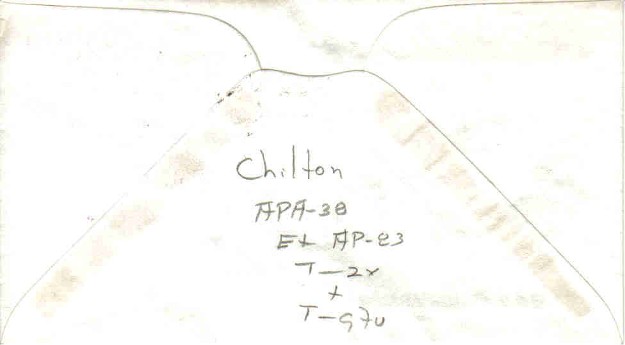 Chilton
APA-38
Ex AP-83
T-2x
+
T-97u